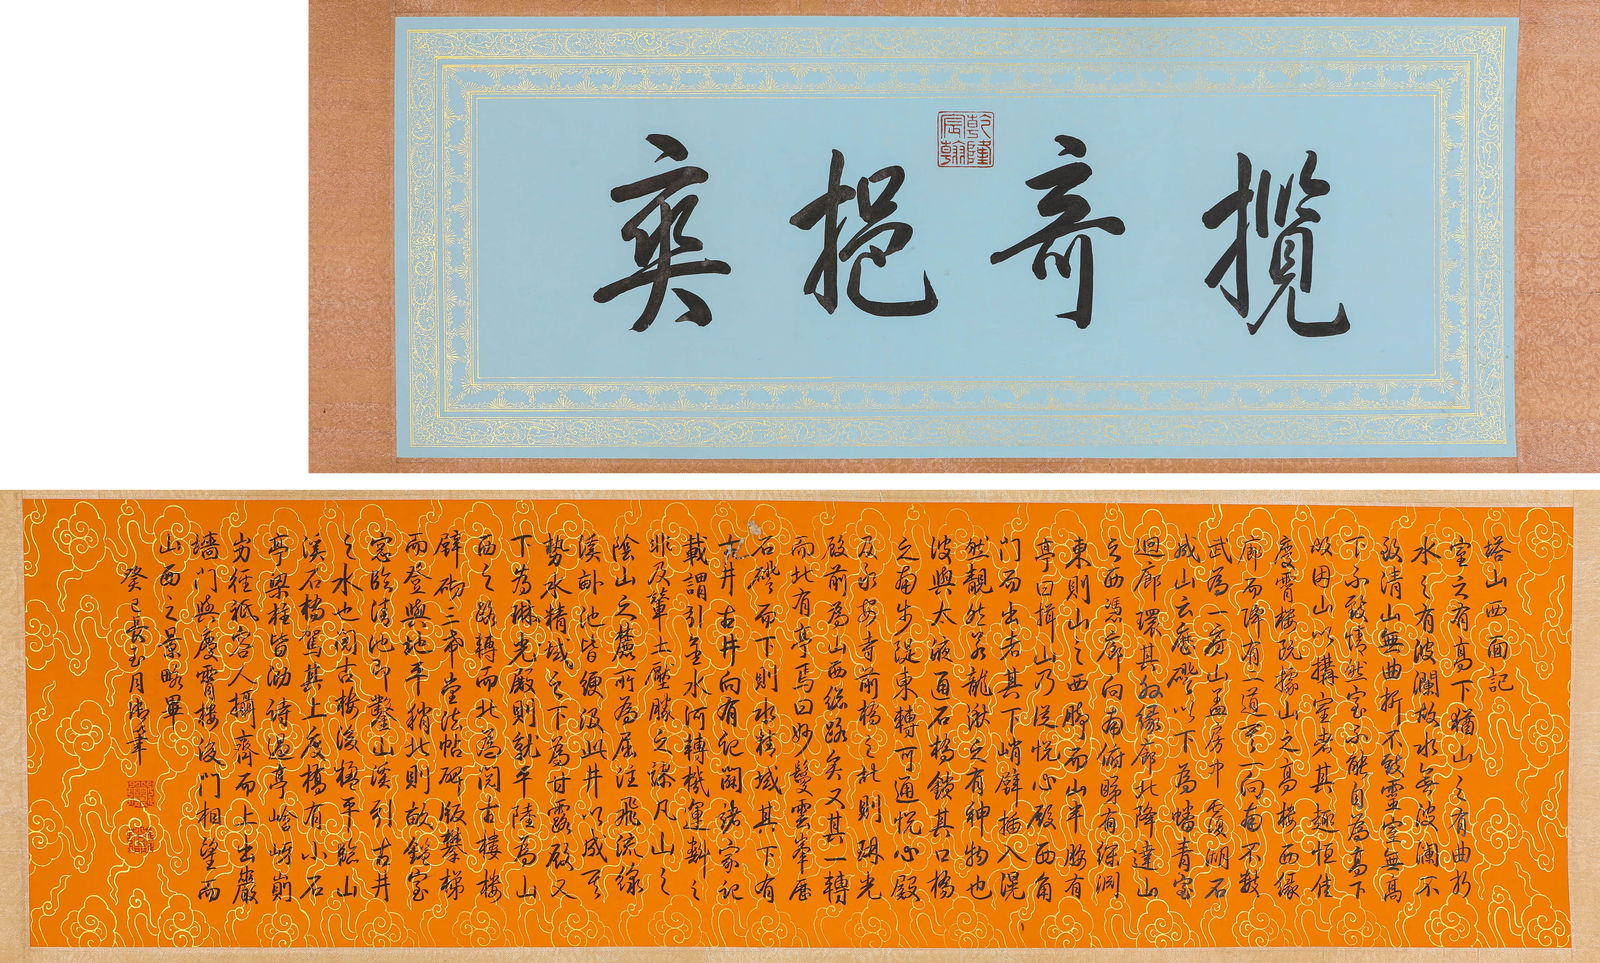 攬奇挹爽
乾隆宸翰
塔山西面記
室之有高下猶山之有曲折
水之有波瀾故水無波瀾不
致清山無曲折不致靈室無高
下不致情然室不能自為高下
故因山以構室者其趣恒佳
慶霄樓既據山之高樓西緣
廊而降有二道其一向南不數
武為一房山蓋房中覆湖石
成山云歷磴以下為蟠青室
迴廊環其外緣廊北降達山
之西憑廊向南俯睇有深洞
東則山之西脚而山半腋有
亭曰揖山乃從悅心殿西角
門而出者其下峭壁插入滉
然靚然若龍湫之有神物也
波與太液通石橋鎖其口橋
之南步隄東轉可通悅心殿
及永安寺前橋之北則琳光
殿前為山西總路矣又其一轉
而北有亭焉曰妙鬘雲峯歷
石磴而下則水精域其下有
古井古井向有記闢諸家記
載謂引金水河轉機運㪺之
非及輦土壓勝之謬凡山之
陰山之麓所為屈注飛流線
溪卧池皆綆汲此井以成其
勢水精域之下為甘露殿又
下為琳光殿則就平陸為山
西之路轉而北為閱古樓樓
壁砌三希堂法帖碑版攀梯
而登與地平稍北則畝鑑室
窓臨清池即鑿山溪引古井
之水也閱古樓後極平臨山
溪石橋駕其上度橋有小石
亭梁柱皆泐詩過亭崯岈
屴徑祗容人攝齊而上出巖
墻門與慶霄樓後門相望而
山西之景略畢
癸巳長至月御筆